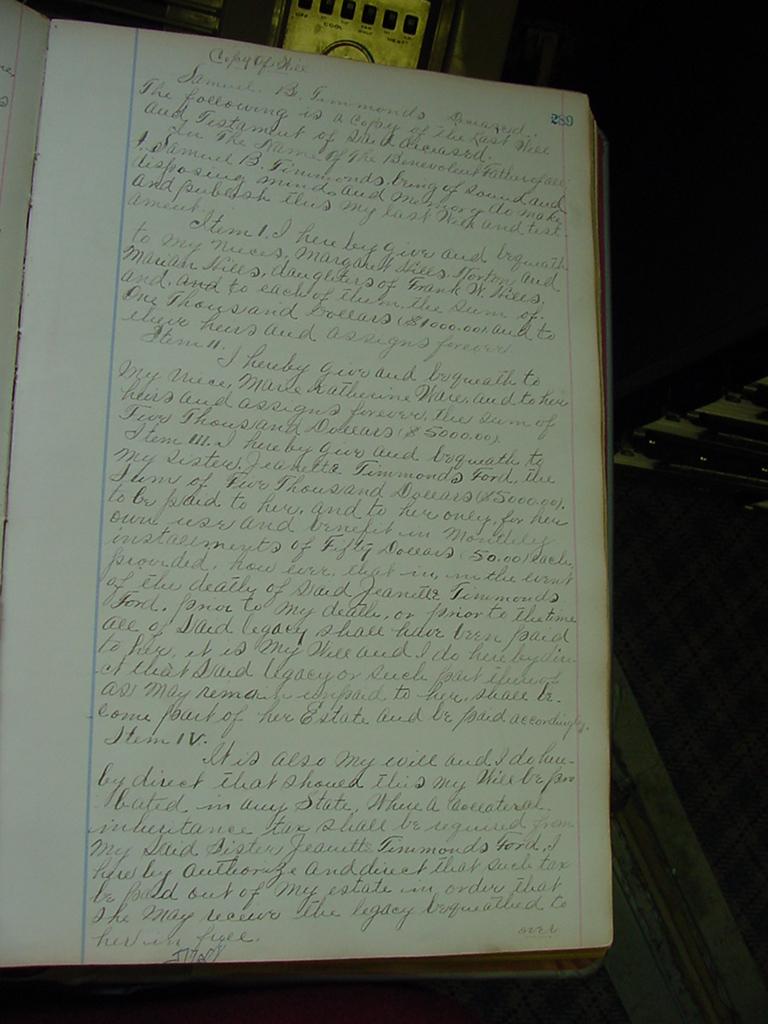 Copy of Will
289
Samuel B. Timmonds Deceased.
The following is a Copy of the Last Will
and Testament of said deceased.
In The Name of The Benevolent Father of all
I, Samuel B. Timmonds, being of sound and
disposing mind and memory do make
and publish this my last Will and test
ament.
Item I. I hereby give and bequeath
to my nieces, Margaret Hills Norton and
Marian Hills, daughters of Frank W. Hills,
and, and to each of them the sum of
One Thousand Dollars ($1000.00) and to
their heirs and assigns forever.
Item II.
I hereby give and bequeath to
my niece, Marie Katherine Ware, and to her
heirs and assigns forever, the sum of
Five Thousand Dollars ($5000.00).
Item III. I hereby give and bequeath to
my sister, Jeanette Timmonds Ford, the
sum of Five Thousand Dollars ($5000.00),
to be paid to her, and to her only, for her
own use and benefit in monthly
installments of Fifty Dollars (50.00) each,
provided, how ever, that in, in the event
of the death of said Jeanette Timmonds
Ford, prior to my death, or prior to the time
all of said legacy shall have been paid
to her, it is my Will and I do hereby dire
ct that said legacy or such part thereof
as may remain unpaid to her, shall be
come part of her Estate and be paid accordingly.
Item IV.
It is also my will and I do here
by direct that should this my Will be pro
bated in any State, where a collateral
inheritance tax shall be required from
my said Sister Jeanette Timmonds Ford, I
hereby authorize and direct that such tax
be paid out of my estate in order that
she may receive the legacy bequeathed to
her in full.
over